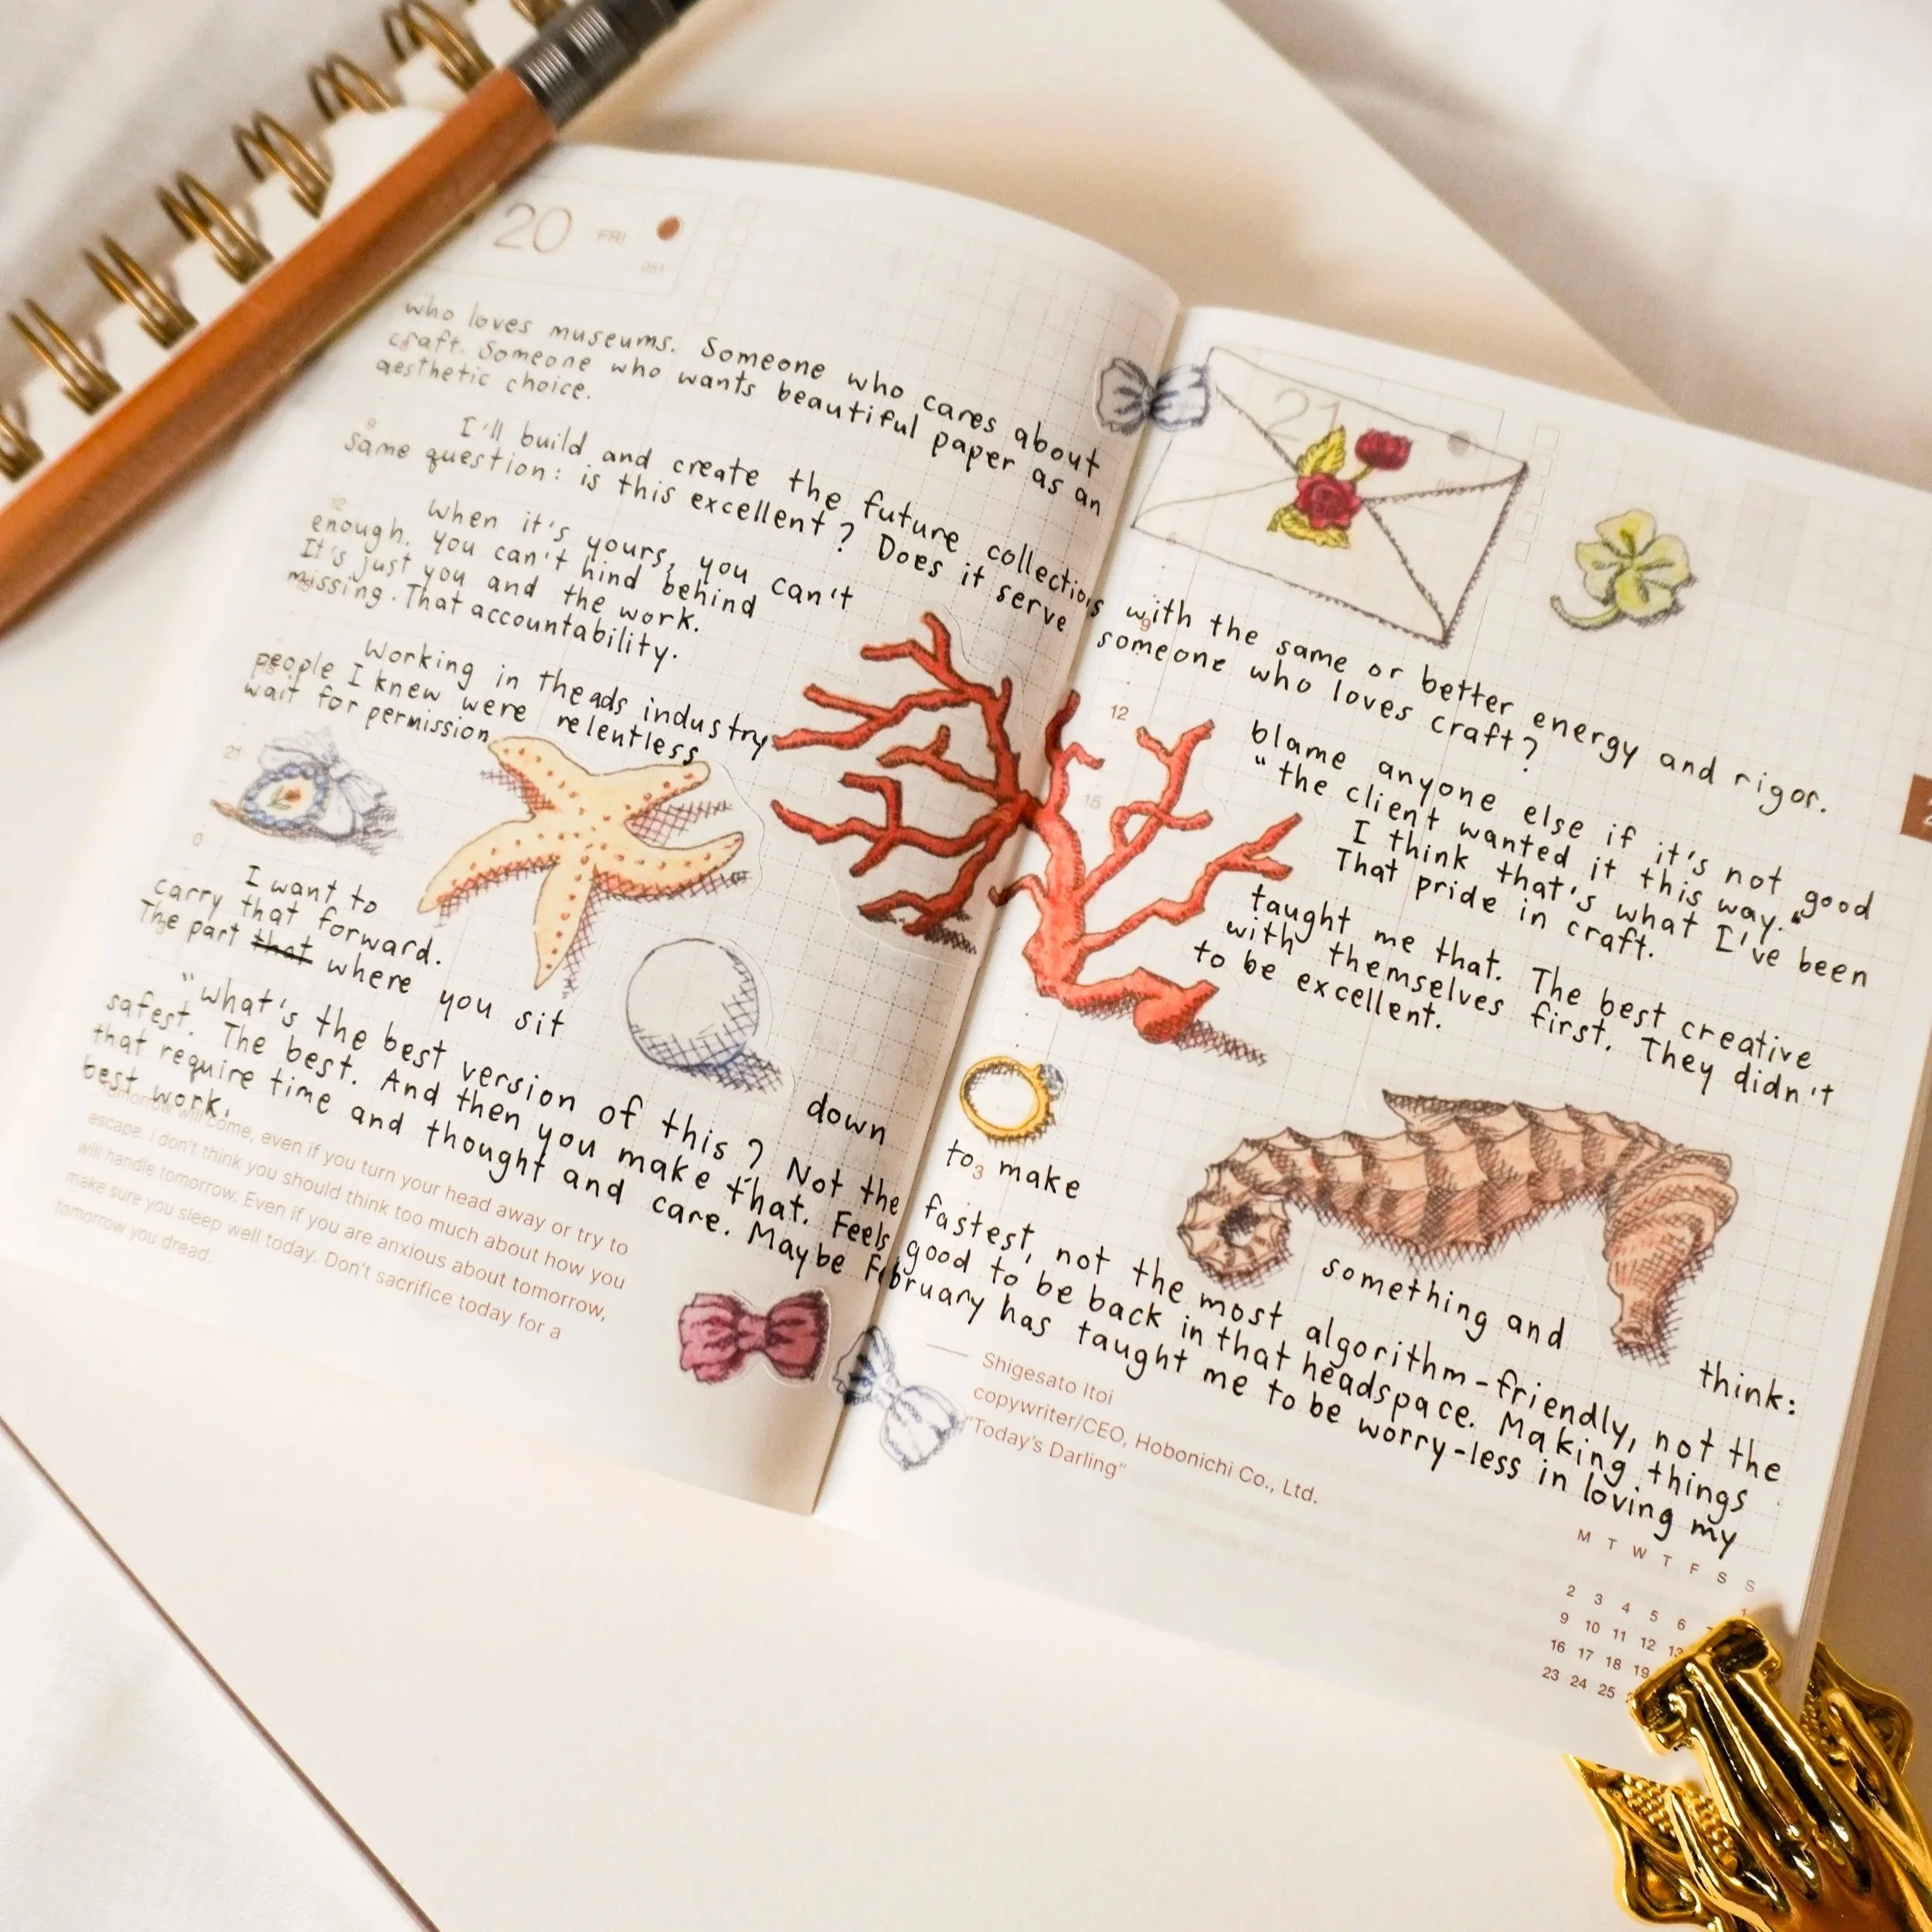 20 FRI
051
21
who loves museums. Someone who cares about
craft. Someone who wants beautiful paper as an
aesthetic choice.
I'll build and create the future collections with the same or better energy and rigor.
same question: is this excellent? Does it serve someone who loves craft?
When it's yours, you can't blame anyone else if it's not good
enough. you can't hind behind "the client wanted it this way."
It's just you and the work. I think that's what I've been
missing. That accountability. That pride in craft.
Working in the ads industry taught me that. The best creative
people I knew were relentless with themselves first. They didn't
wait for permission to be excellent.
I want to
carry that forward.
The part that where you sit down to make something and think:
"what's the best version of this? Not the fastest, not the most algorithm-friendly, not the
safest. The best. And then you make that. Feels good to be back in that headspace. Making things
that require time and thought and care. Maybe February has taught me to be worry-less in loving my
best work.
9
12
21
0
9
12
15
3
Tomorrow will come, even if you turn your head away or try to
escape. I don't think you should think too much about how you
will handle tomorrow. Even if you are anxious about tomorrow,
make sure you sleep well today. Don't sacrifice today for a
tomorrow you dread.
— Shigesato Itoi
copywriter/CEO, Hobonichi Co., Ltd.
"Today's Darling"
M T W T F S S
1
2 3 4 5 6
9 10 11 12 13
16 17 18 19
23 24 25